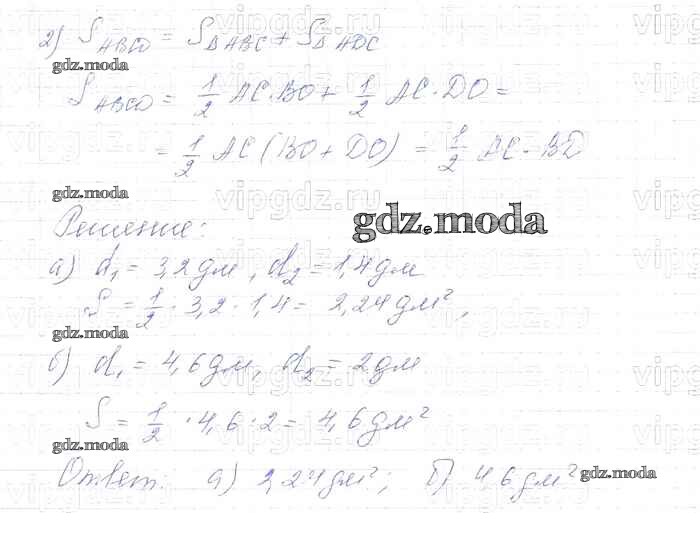 2) S ABCD = S Δ ABC + S Δ ADC
gdz.moda
S ABCD = 1/2 AC·BO + 1/2 AC·DO =
= 1/2 AC (BO + DO) = 1/2 AC·BD
gdz.moda
Решение:
gdz.moda
а) d₁ = 3,2 дм, d₂ = 1,4 дм
S = 1/2 · 3,2 · 1,4 = 2,24 дм²,
gdz.moda
б) d₁ = 4,6 дм, d₂ = 2 дм
S = 1/2 · 4,6 · 2 = 4,6 дм²
gdz.moda
Ответ: а) 2,24 дм²; б) 4,6 дм²
gdz.moda